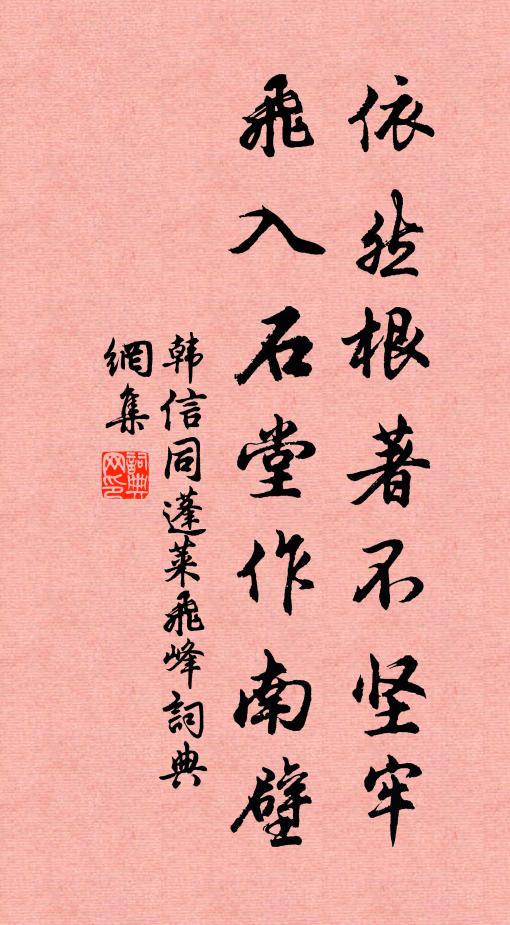 依然根著不坚牢
飞入石堂作南壁
韩信同蓬莱飞峰词典
網集
詞典網印